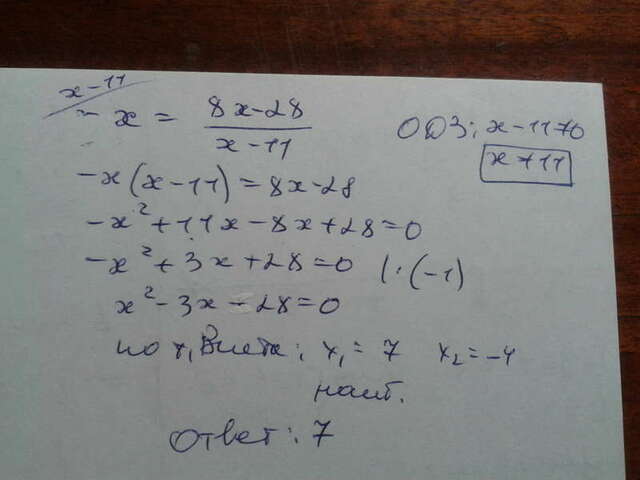 x-11
-x = 8x-28 / x-11
ОДЗ: x-11≠0
x≠11
-x(x-11)=8x-28
-x²+11x-8x+28=0
-x²+3x+28=0 |·(-1)
x²-3x-28=0
по т, Виета: x₁=7 x₂=-4
наиб.
Ответ: 7